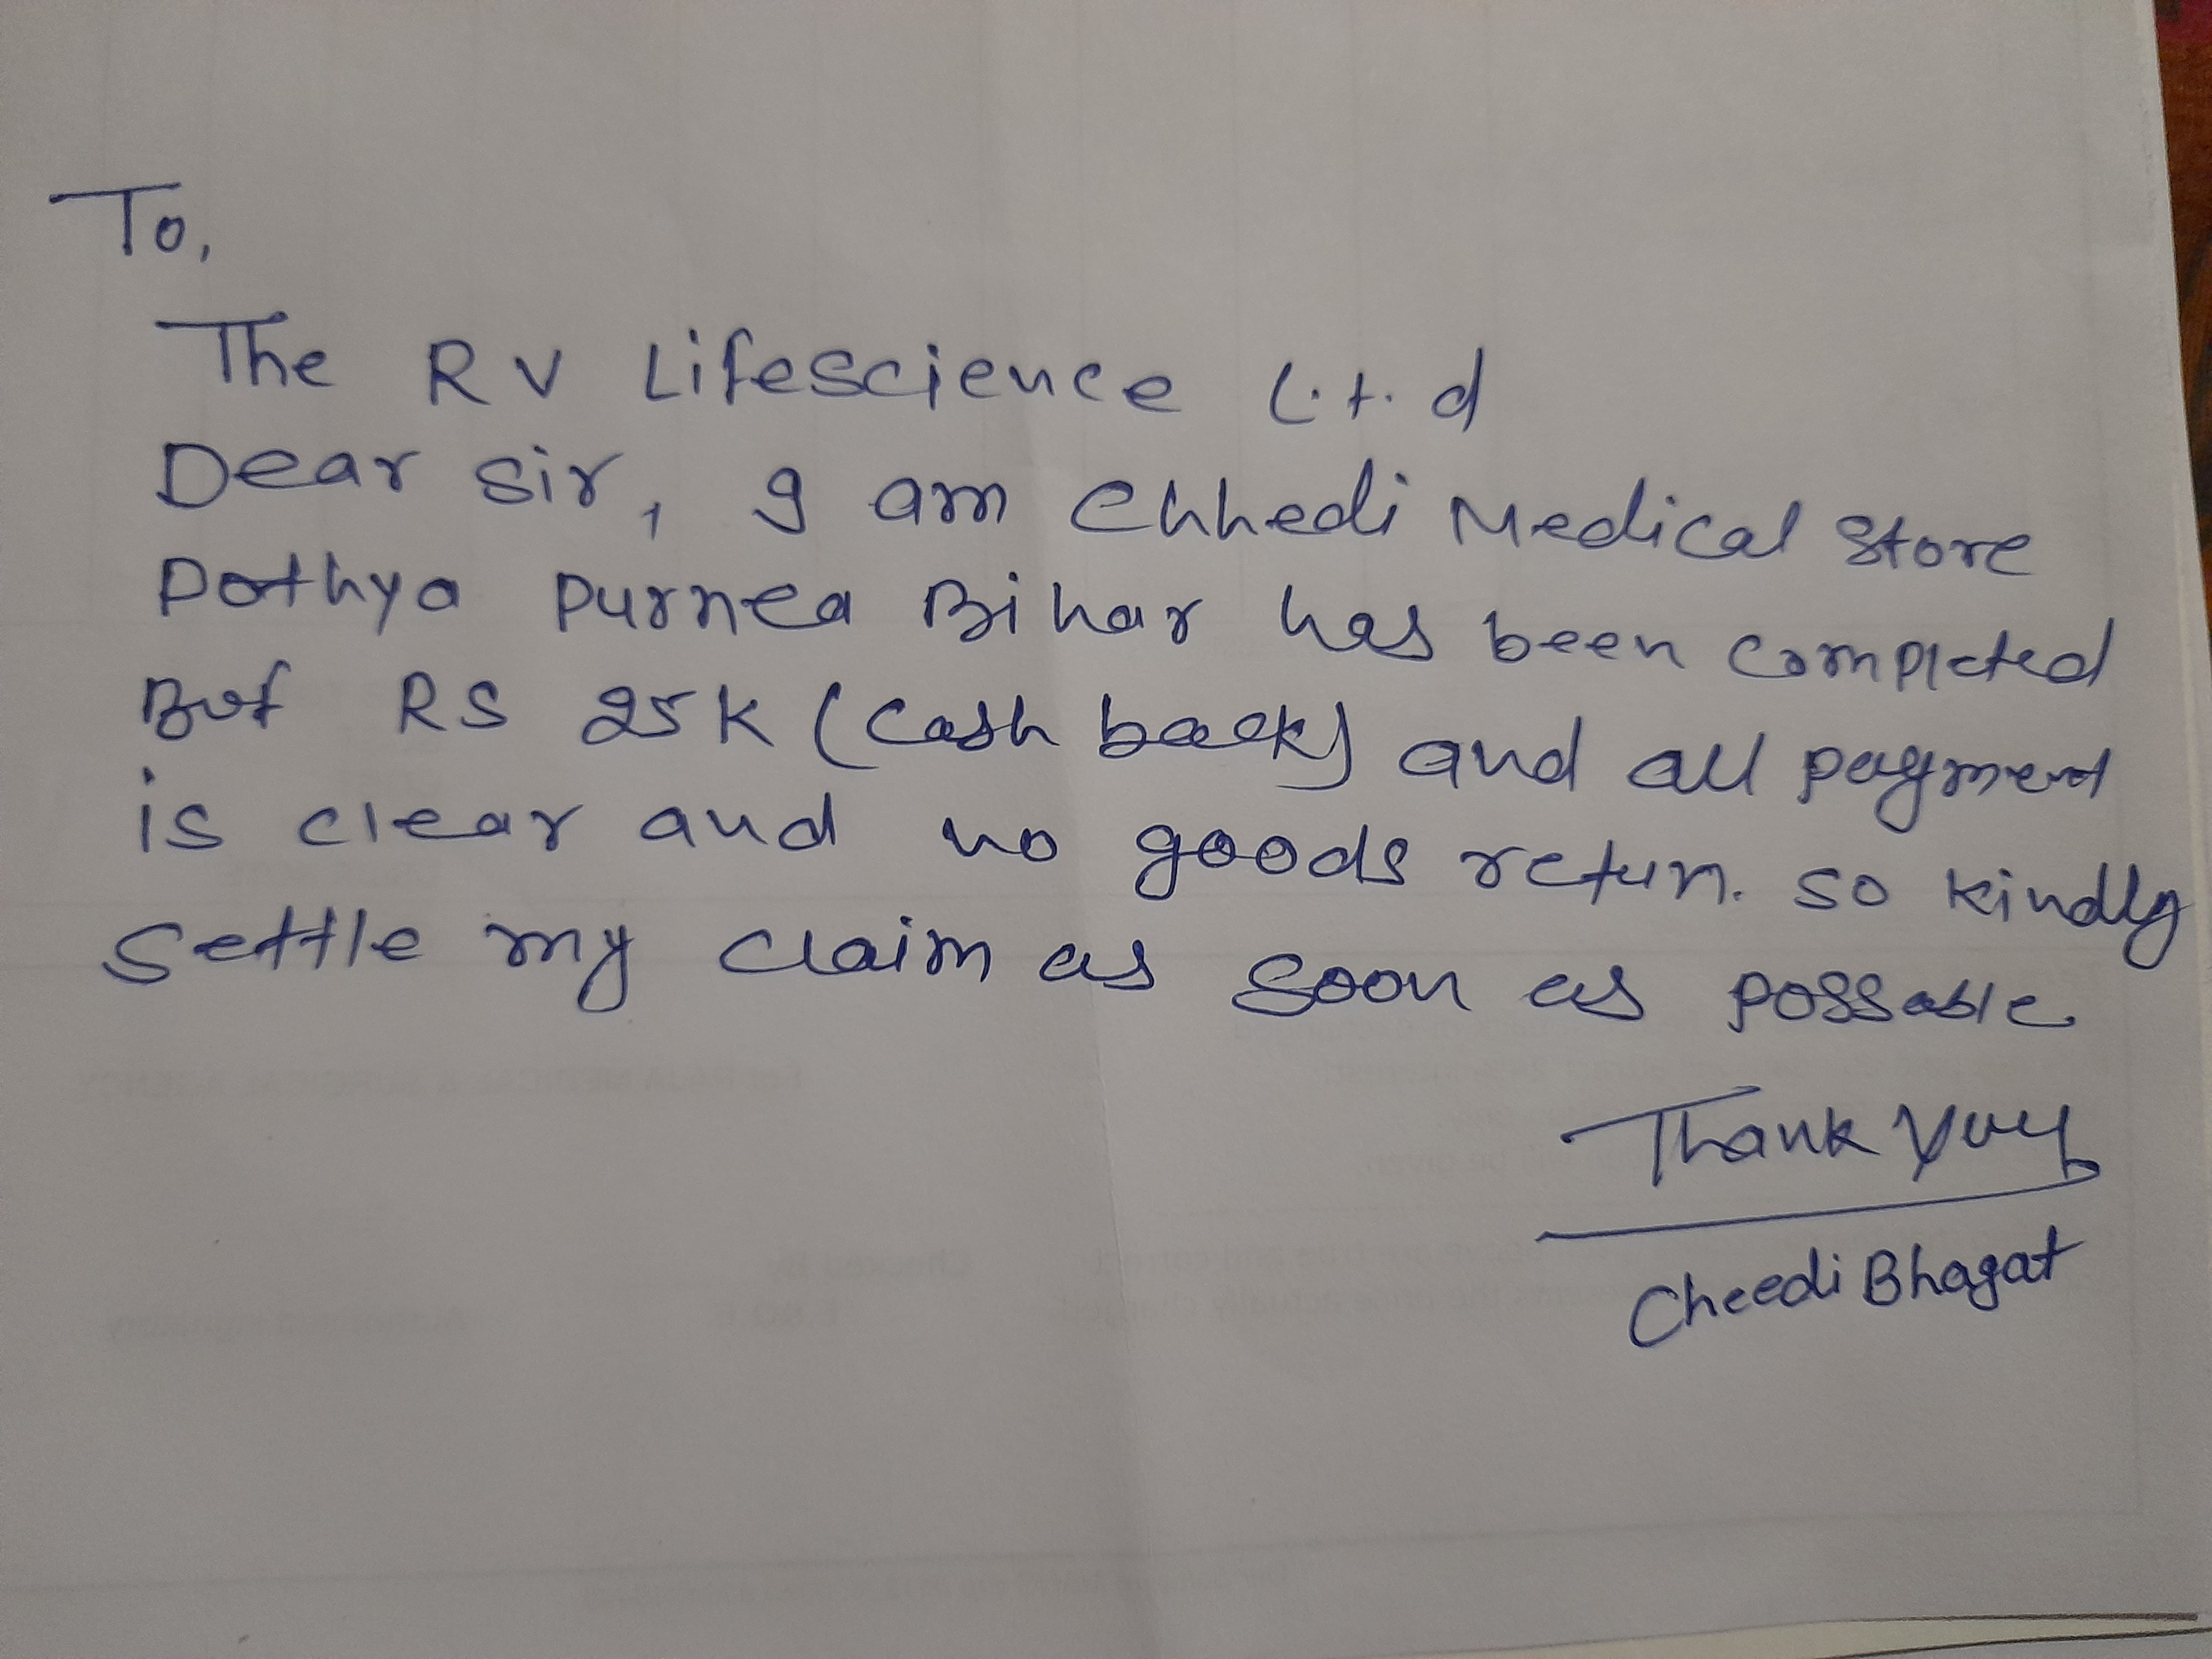 To,
The RV Lifescience L.t.d
Dear sir, I am Chhedi Medical Store
Pothya Purnea Bihar has been completed
But RS 25K (Cash back) and all payment
is clear and no goods retun. so kindly
settle my claim as soon as possable
Thank you
Cheedi Bhagat